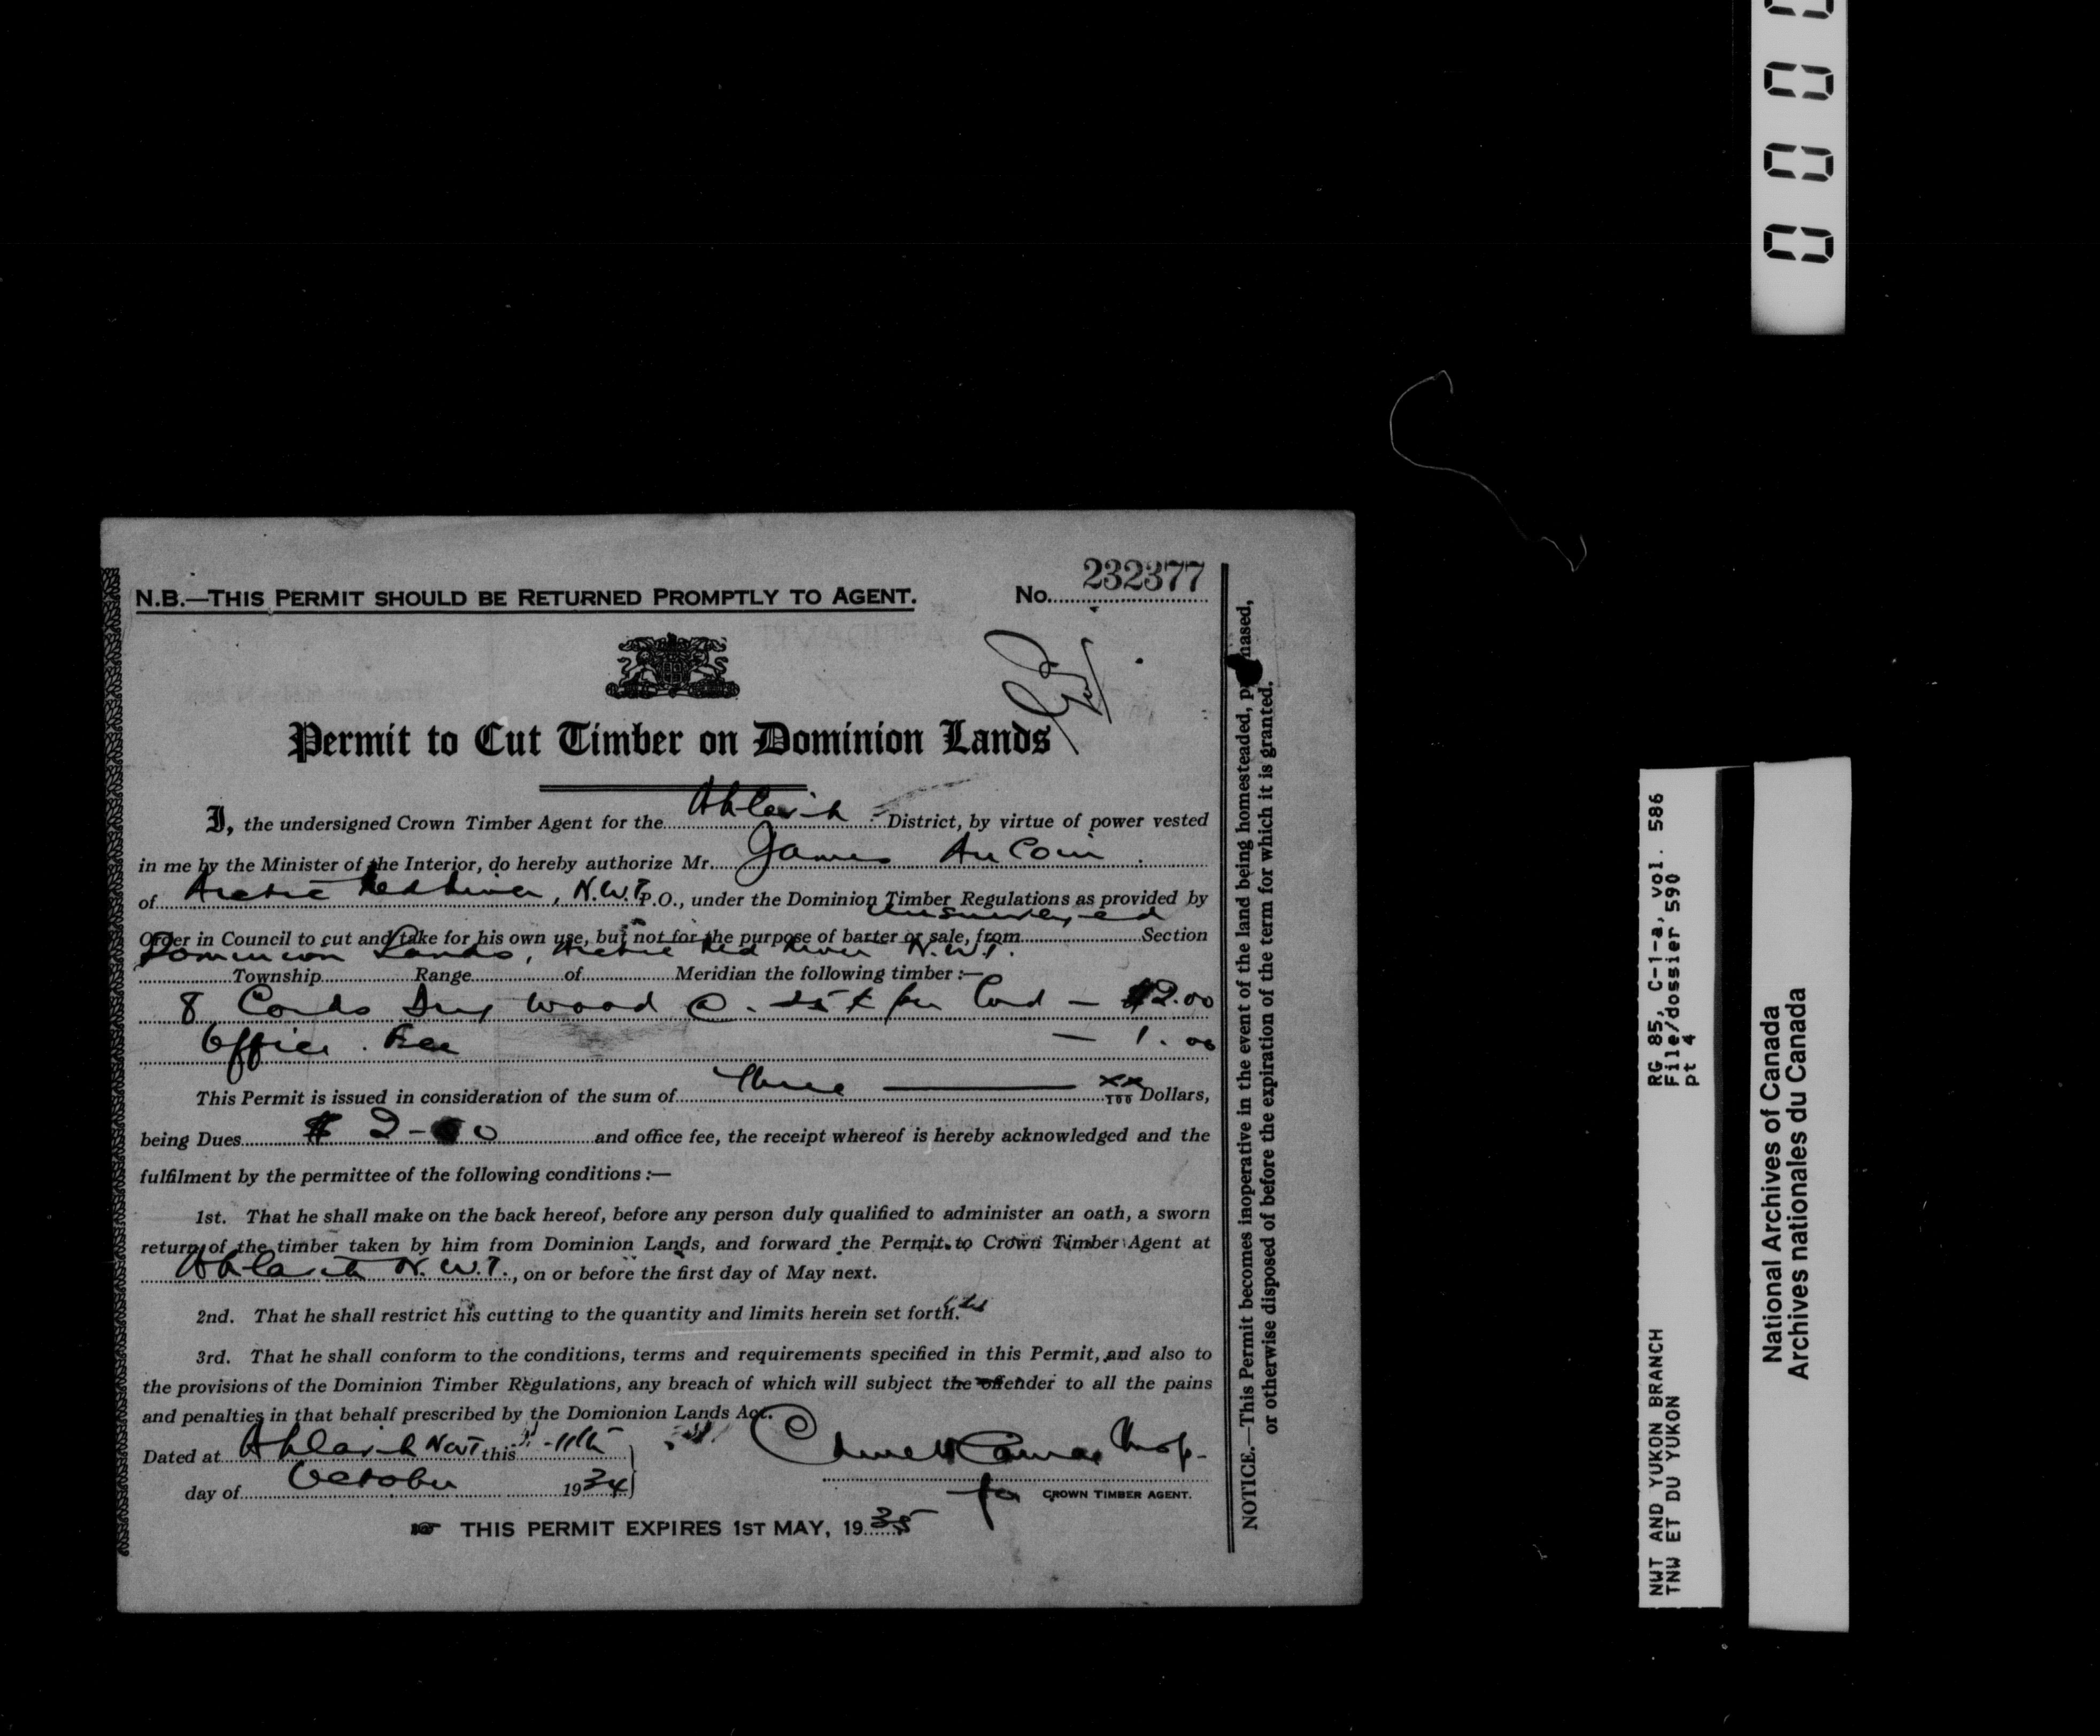 N.B.—THIS PERMIT SHOULD BE RETURNED PROMPTLY TO AGENT.
No. 232377
Permit to Cut Timber on Dominion Lands
I, the undersigned Crown Timber Agent for the Aklavik District, by virtue of power vested
in me by the Minister of the Interior, do hereby authorize Mr. James AuCoin
of Arctic Red River, N.W.T. P.O., under the Dominion Timber Regulations as provided by
unsurveyed
Order in Council to cut and take for his own use, but not for the purpose of barter or sale, from Section
Dominion Lands, Arctic Red River N.W.T.
Township Range of Meridian the following timber :—
8 Cords Dry Wood @ 25¢ per Cord — $2.00
Office Fee — 1.00
This Permit is issued in consideration of the sum of Three xx/100 Dollars,
being Dues $ 2-00 and office fee, the receipt whereof is hereby acknowledged and the
fulfilment by the permittee of the following conditions :—
1st. That he shall make on the back hereof, before any person duly qualified to administer an oath, a sworn
return of the timber taken by him from Dominion Lands, and forward the Permit to Crown Timber Agent at
Aklavik N.W.T., on or before the first day of May next.
2nd. That he shall restrict his cutting to the quantity and limits herein set forth.
3rd. That he shall conform to the conditions, terms and requirements specified in this Permit, and also to
the provisions of the Dominion Timber Regulations, any breach of which will subject the offender to all the pains
and penalties in that behalf prescribed by the Domionion Lands Act.
Dated at Aklavik NWT this 11th
day of October 1934
for CROWN TIMBER AGENT.
THIS PERMIT EXPIRES 1ST MAY, 1935
NOTICE.—This Permit becomes inoperative in the event of the land being homesteaded, purchased,
or otherwise disposed of before the expiration of the term for which it is granted.
NWT AND YUKON BRANCH RG 85, C-1-a, vol. 586
TNW ET DU YUKON File/dossier 590
pt 4
National Archives of Canada
Archives nationales du Canada